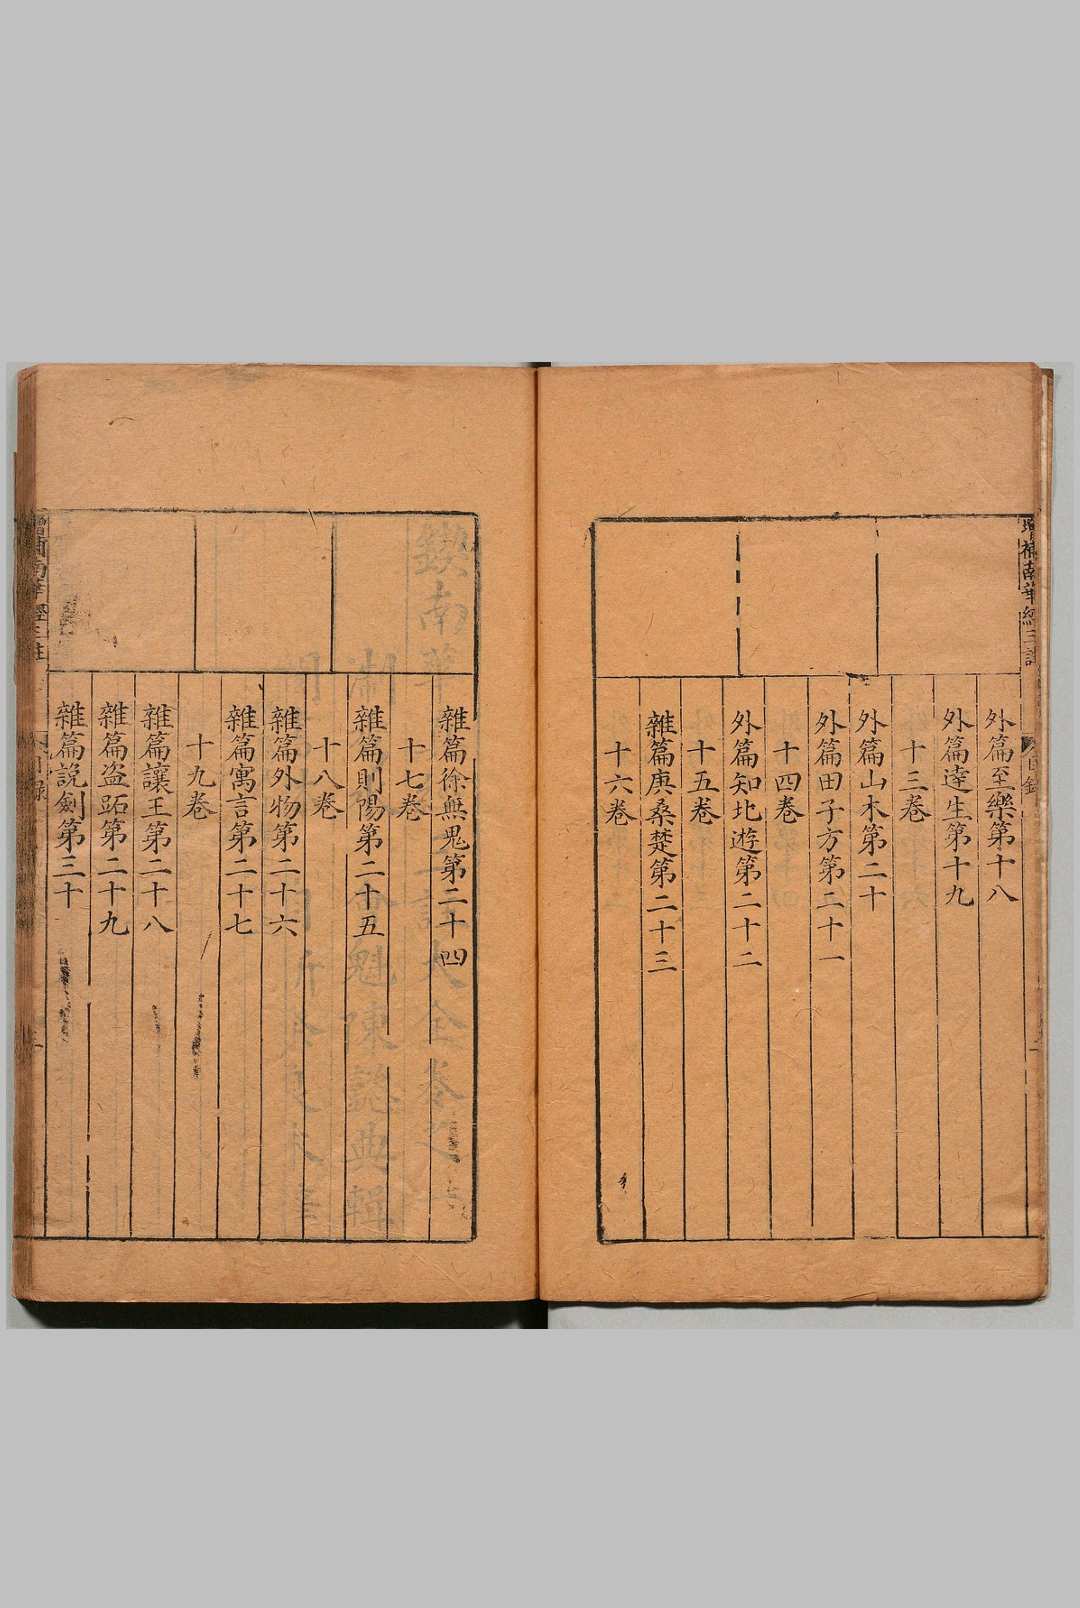 增補南華經三註
目錄
外篇至樂第十八
外篇達生第十九
十三卷
外篇山木第二十
外篇田子方第二十一
十四卷
外篇知北遊第二十二
十五卷
雜篇庚桑楚第二十三
十六卷
雜篇徐無鬼第二十四
十七卷
雜篇則陽第二十五
十八卷
雜篇外物第二十六
雜篇寓言第二十七
十九卷
雜篇讓王第二十八
雜篇盗跖第二十九
雜篇説劍第三十
增補南華經三註
目錄